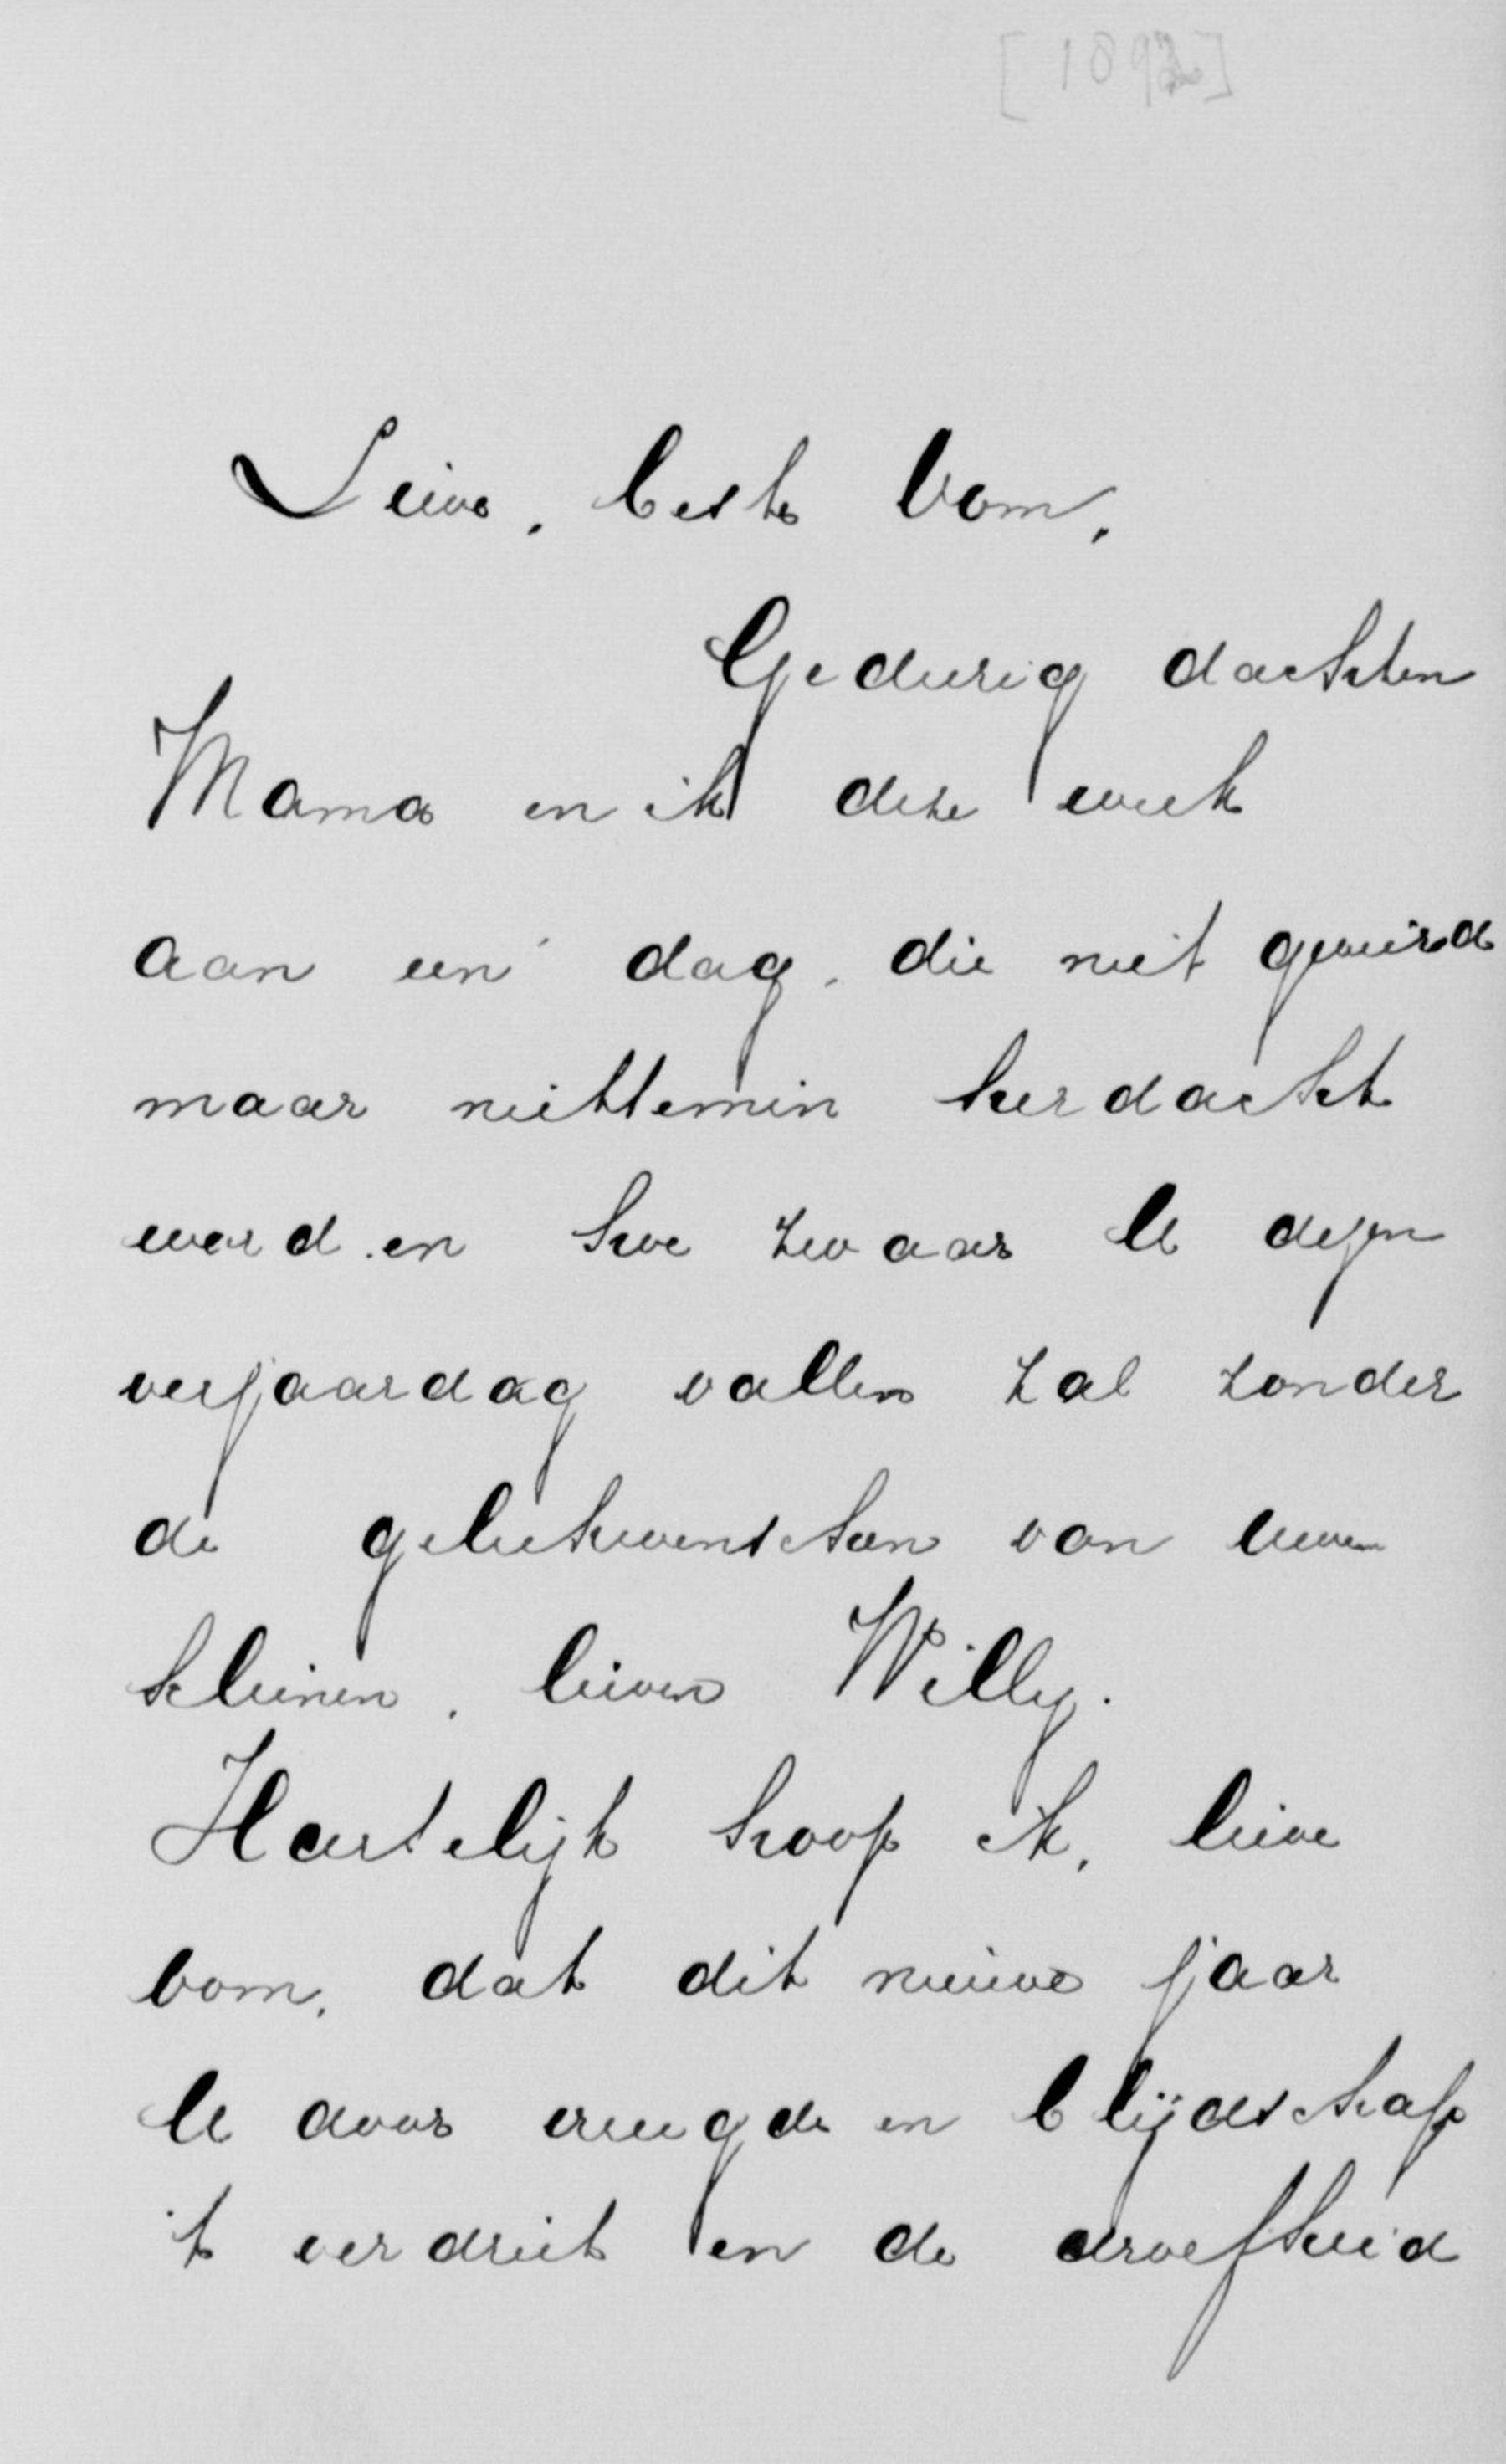 [1892]
Lieve, beste Oom,
Gedurig dachten
Mama en ik deze week
aan een dag, die niet gevierd
maar niettemin herdacht
werd en hoe zwaar U dezen
verjaardag vallen zal zonder
de gelukwenschen van uwen
kleinen, lieven Willy.
Hartelijk hoop ik, lieve
oom, dat dit nieuwe jaar
U door vreugde en blijdschap
't verdriet en de droefheid